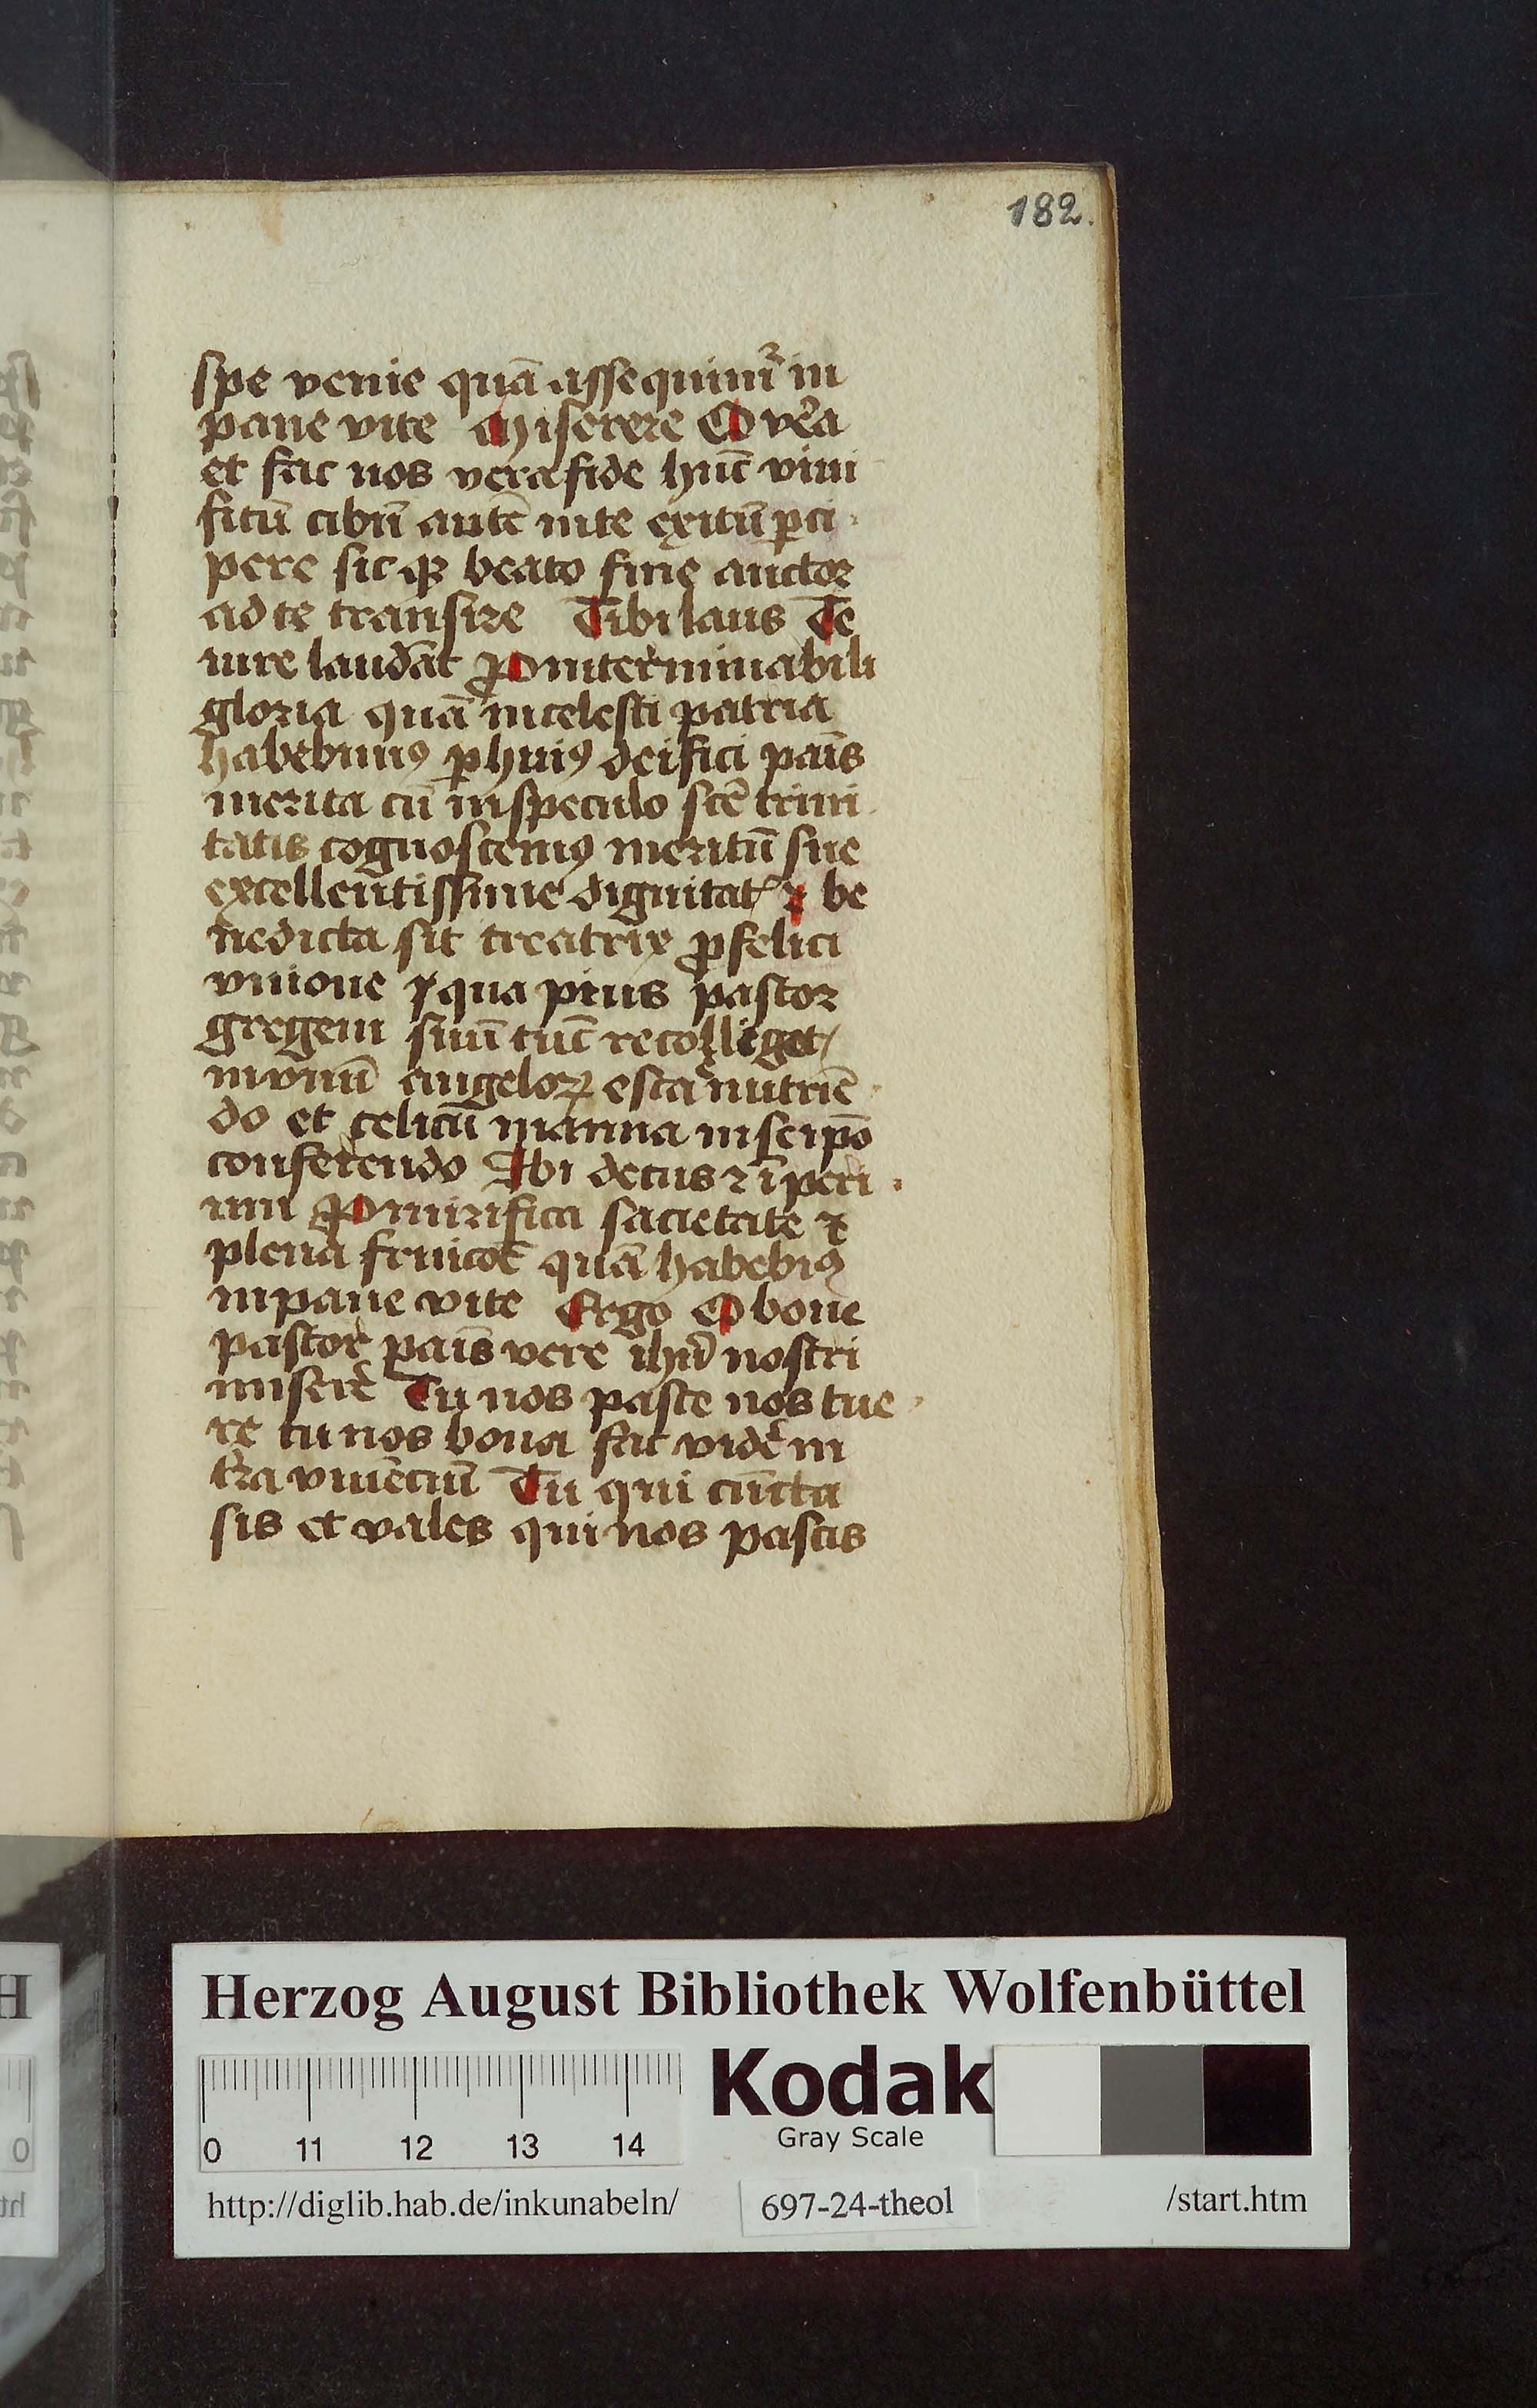 182.
spe venie quā assequimr̄ in
pane vite Miserere O vera
et fac nos vera fide hūc vivi
ficū cibū ante vite exitū ꝑci
pere sicqꝫ beato fine auctor
ad te transire Tibi laus Te
iure laudāt ꝓ interminabili
gloria quā in celesti patria
habebimꝰ ꝑ huiꝰ deifici pais̄
merita cū in speculo sc̄e trini
tatis cognoscemꝰ meritū sue
excellentissime dignitat ⁊ be
nedicta sit creatrix ꝓ felici
vnione ꝓ qua pius pastor
gregem suū tūc recolliget
in vnū angeloꝝ esca nutriē
do et celicū manna in seipō
conferendo Tibi decus ⁊ īperi
um Pro mirifica sacietate ⁊
plena fruicōe quā habebiꝰ
in pane vite Ergo O bone
pastor pais̄ vere ihū nostri
miserē Tu nos pasce nos tue
re tu nos bona fac vidē in
tr̄a viuēciū Tu qui cūcta
sis et vales qui nos pascis
Herzog August Bibliothek Wolfenbüttel
Kodak
Gray Scale
0 11 12 13 14
http://diglib.hab.de/inkunabeln/ 697-24-theol /start.htm